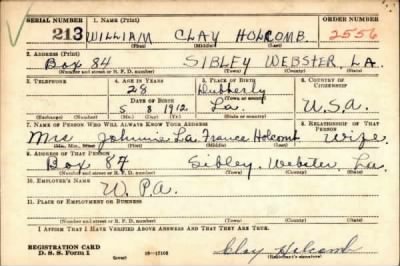 SERIAL NUMBER 1. NAME (Print) ORDER NUMBER
213 WILLIAM CLAY HOLCOMB 2556
(First) (Middle) (Last)
2. ADDRESS (Print)
Box 84 SIBLEY WEBSTER, LA.
(Number and street or R. F. D. number) (Town) (County) (State)
3. TELEPHONE 4. AGE IN YEARS 5. PLACE OF BIRTH 6. COUNTRY OF CITIZENSHIP
28 Dubberly
DATE OF BIRTH (Town or county)
5 8 1912 La. U.S.A.
(Exchange) (Number) (Mo.) (Day) (Yr.) (State or country)
7. NAME OF PERSON WHO WILL ALWAYS KNOW YOUR ADDRESS 8. RELATIONSHIP OF THAT PERSON
Mrs Johnnie La France Holcomb Wife
(Mr., Mrs., Miss) (First) (Middle) (Last)
9. ADDRESS OF THAT PERSON
Box 84 Sibley, Webster, La.
(Number and street or R. F. D. number) (Town) (County) (State)
10. EMPLOYER'S NAME
W.P.A.
11. PLACE OF EMPLOYMENT OR BUSINESS
(Number and street or R. F. D. number) (Town) (County) (State)
I AFFIRM THAT I HAVE VERIFIED ABOVE ANSWERS AND THAT THEY ARE TRUE.
REGISTRATION CARD
D. S. S. Form 1 (over) Clay Holcomb
(Registrant's signature)